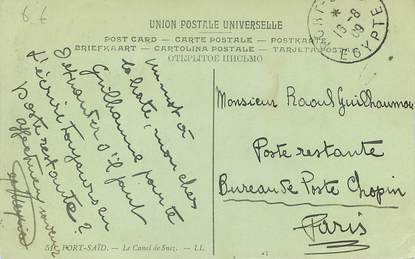 UNION POSTALE UNIVERSELLE
POST CARD — CARTE POSTALE — POSTKARTE
BRIEFKAART — CARTOLINA POSTALE — TARJETA POSTAL
ОТКРЫТОЕ ПИСЬМО
EGYPTE
Un mot à
la hâte, mon cher
Guilhaumou pour te
demander s'il faut
t'écrire toujours en
poste restante?
Monsieur Raoul Guilhaumou
Poste restante
Bureau de Poste Chopin
Paris
PORT-SAÏD. — Le Canal de Suez. — LL.